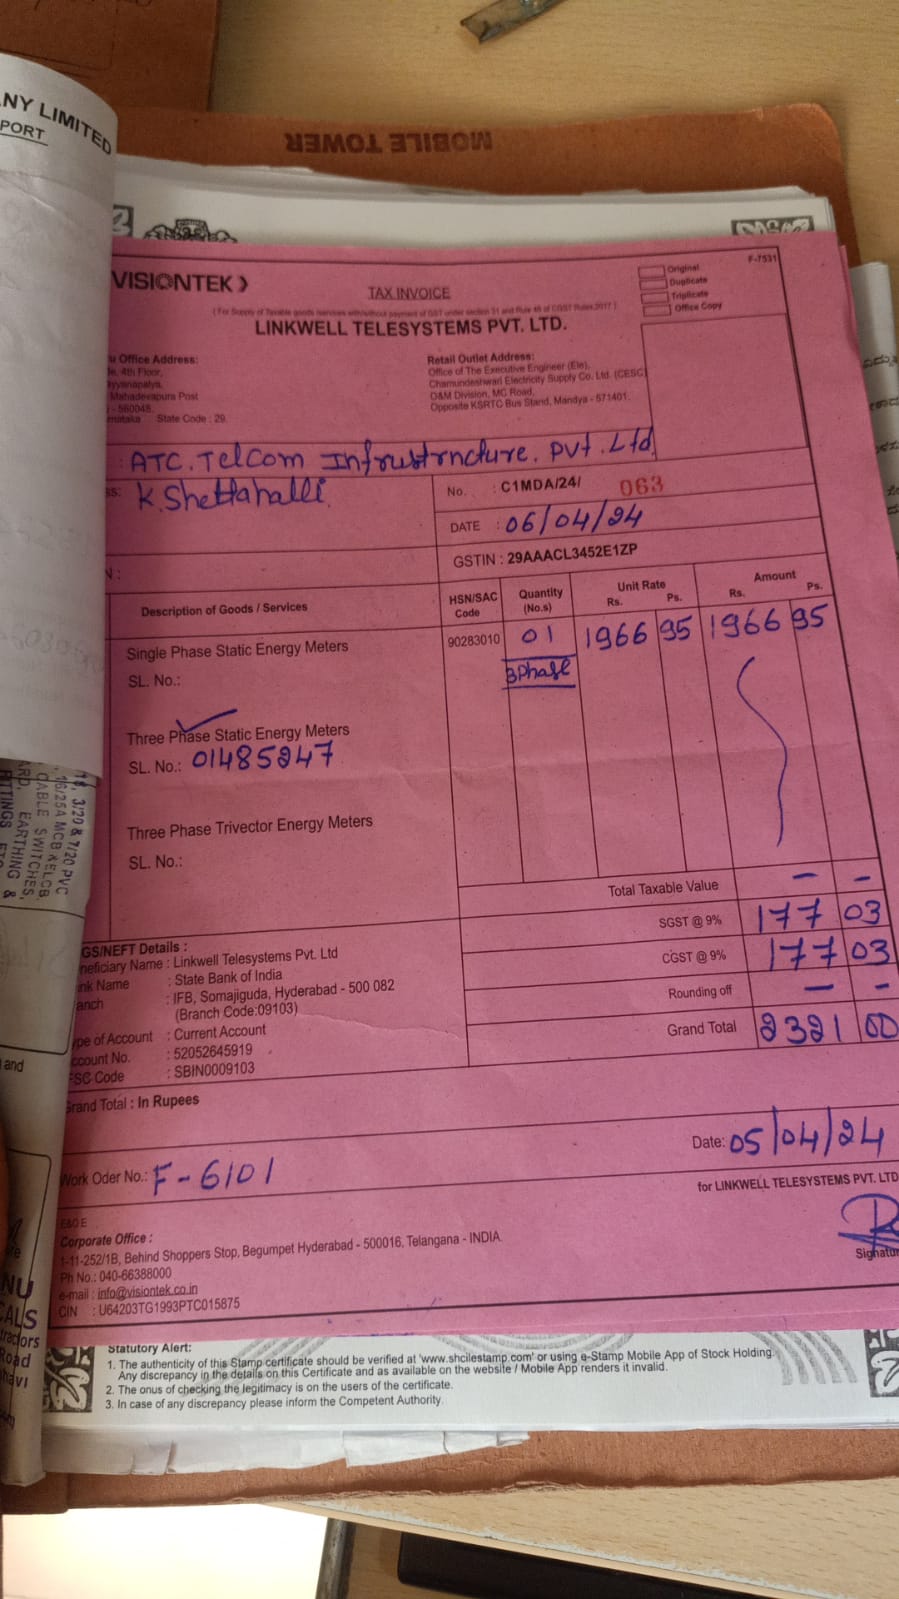 NY LIMITED
PORT
MOBILE TOWER
VISIONTEK
F-7531
TAX INVOICE
Original
Duplicate
Triplicate
Office Copy
LINKWELL TELESYSTEMS PVT. LTD.
Office Address:
4th Floor,
Mahadevapura Post
- 560048.
State Code : 29
Retail Outlet Address:
Office of The Executive Engineer (Ele),
Chamundeshwari Electricity Supply Co. Ltd. (CESC)
O&M Division, MC Road,
Opposite KSRTC Bus Stand, Mandya - 571401.
: ATC. Telcom Infrustrncture. Pvt. Ltd
K. Shettahalli
No. : C1MDA/24/ 063
DATE : 06/04/24
GSTIN : 29AAACL3452E1ZP
Description of Goods / Services
HSN/SAC Code
Quantity (No.s)
Unit Rate Rs. Ps.
Amount Rs. Ps.
Single Phase Static Energy Meters 90283010 01 1966 95 1966 95
SL. No.:
3Phase
Three Phase Static Energy Meters
SL. No.: 01485247
Three Phase Trivector Energy Meters
SL. No.:
Total Taxable Value - -
SGST @ 9% 177 03
CGST @ 9% 177 03
Rounding off - -
Grand Total 2321 00
GS/NEFT Details :
neficiary Name : Linkwell Telesystems Pvt. Ltd
nk Name : State Bank of India
anch : IFB, Somajiguda, Hyderabad - 500 082
(Branch Code:09103)
ype of Account : Current Account
ccount No. : 52052645919
FSC Code : SBIN0009103
Grand Total : In Rupees
Date: 05/04/24
Work Oder No.: F-6101
for LINKWELL TELESYSTEMS PVT. LTD
E&O E
Corporate Office :
1-11-252/1B, Behind Shoppers Stop, Begumpet Hyderabad - 500016, Telangana - INDIA.
Ph No.: 040-66388000
e-mail : info@visiontek.co.in
CIN : U64203TG1993PTC015875
Signatu
Statutory Alert:
1. The authenticity of this Stamp certificate should be verified at 'www.shcilestamp.com' or using e-Stamp Mobile App of Stock Holding.
Any discrepancy in the details on this Certificate and as available on the website / Mobile App renders it invalid.
2. The onus of checking the legitimacy is on the users of the certificate.
3. In case of any discrepancy please inform the Competent Authority.
3/20 & 7/20 PVC
6/25A MCB &ELCB.
CABLE SWITCHES,
EARTHING &
and
NU
CALS